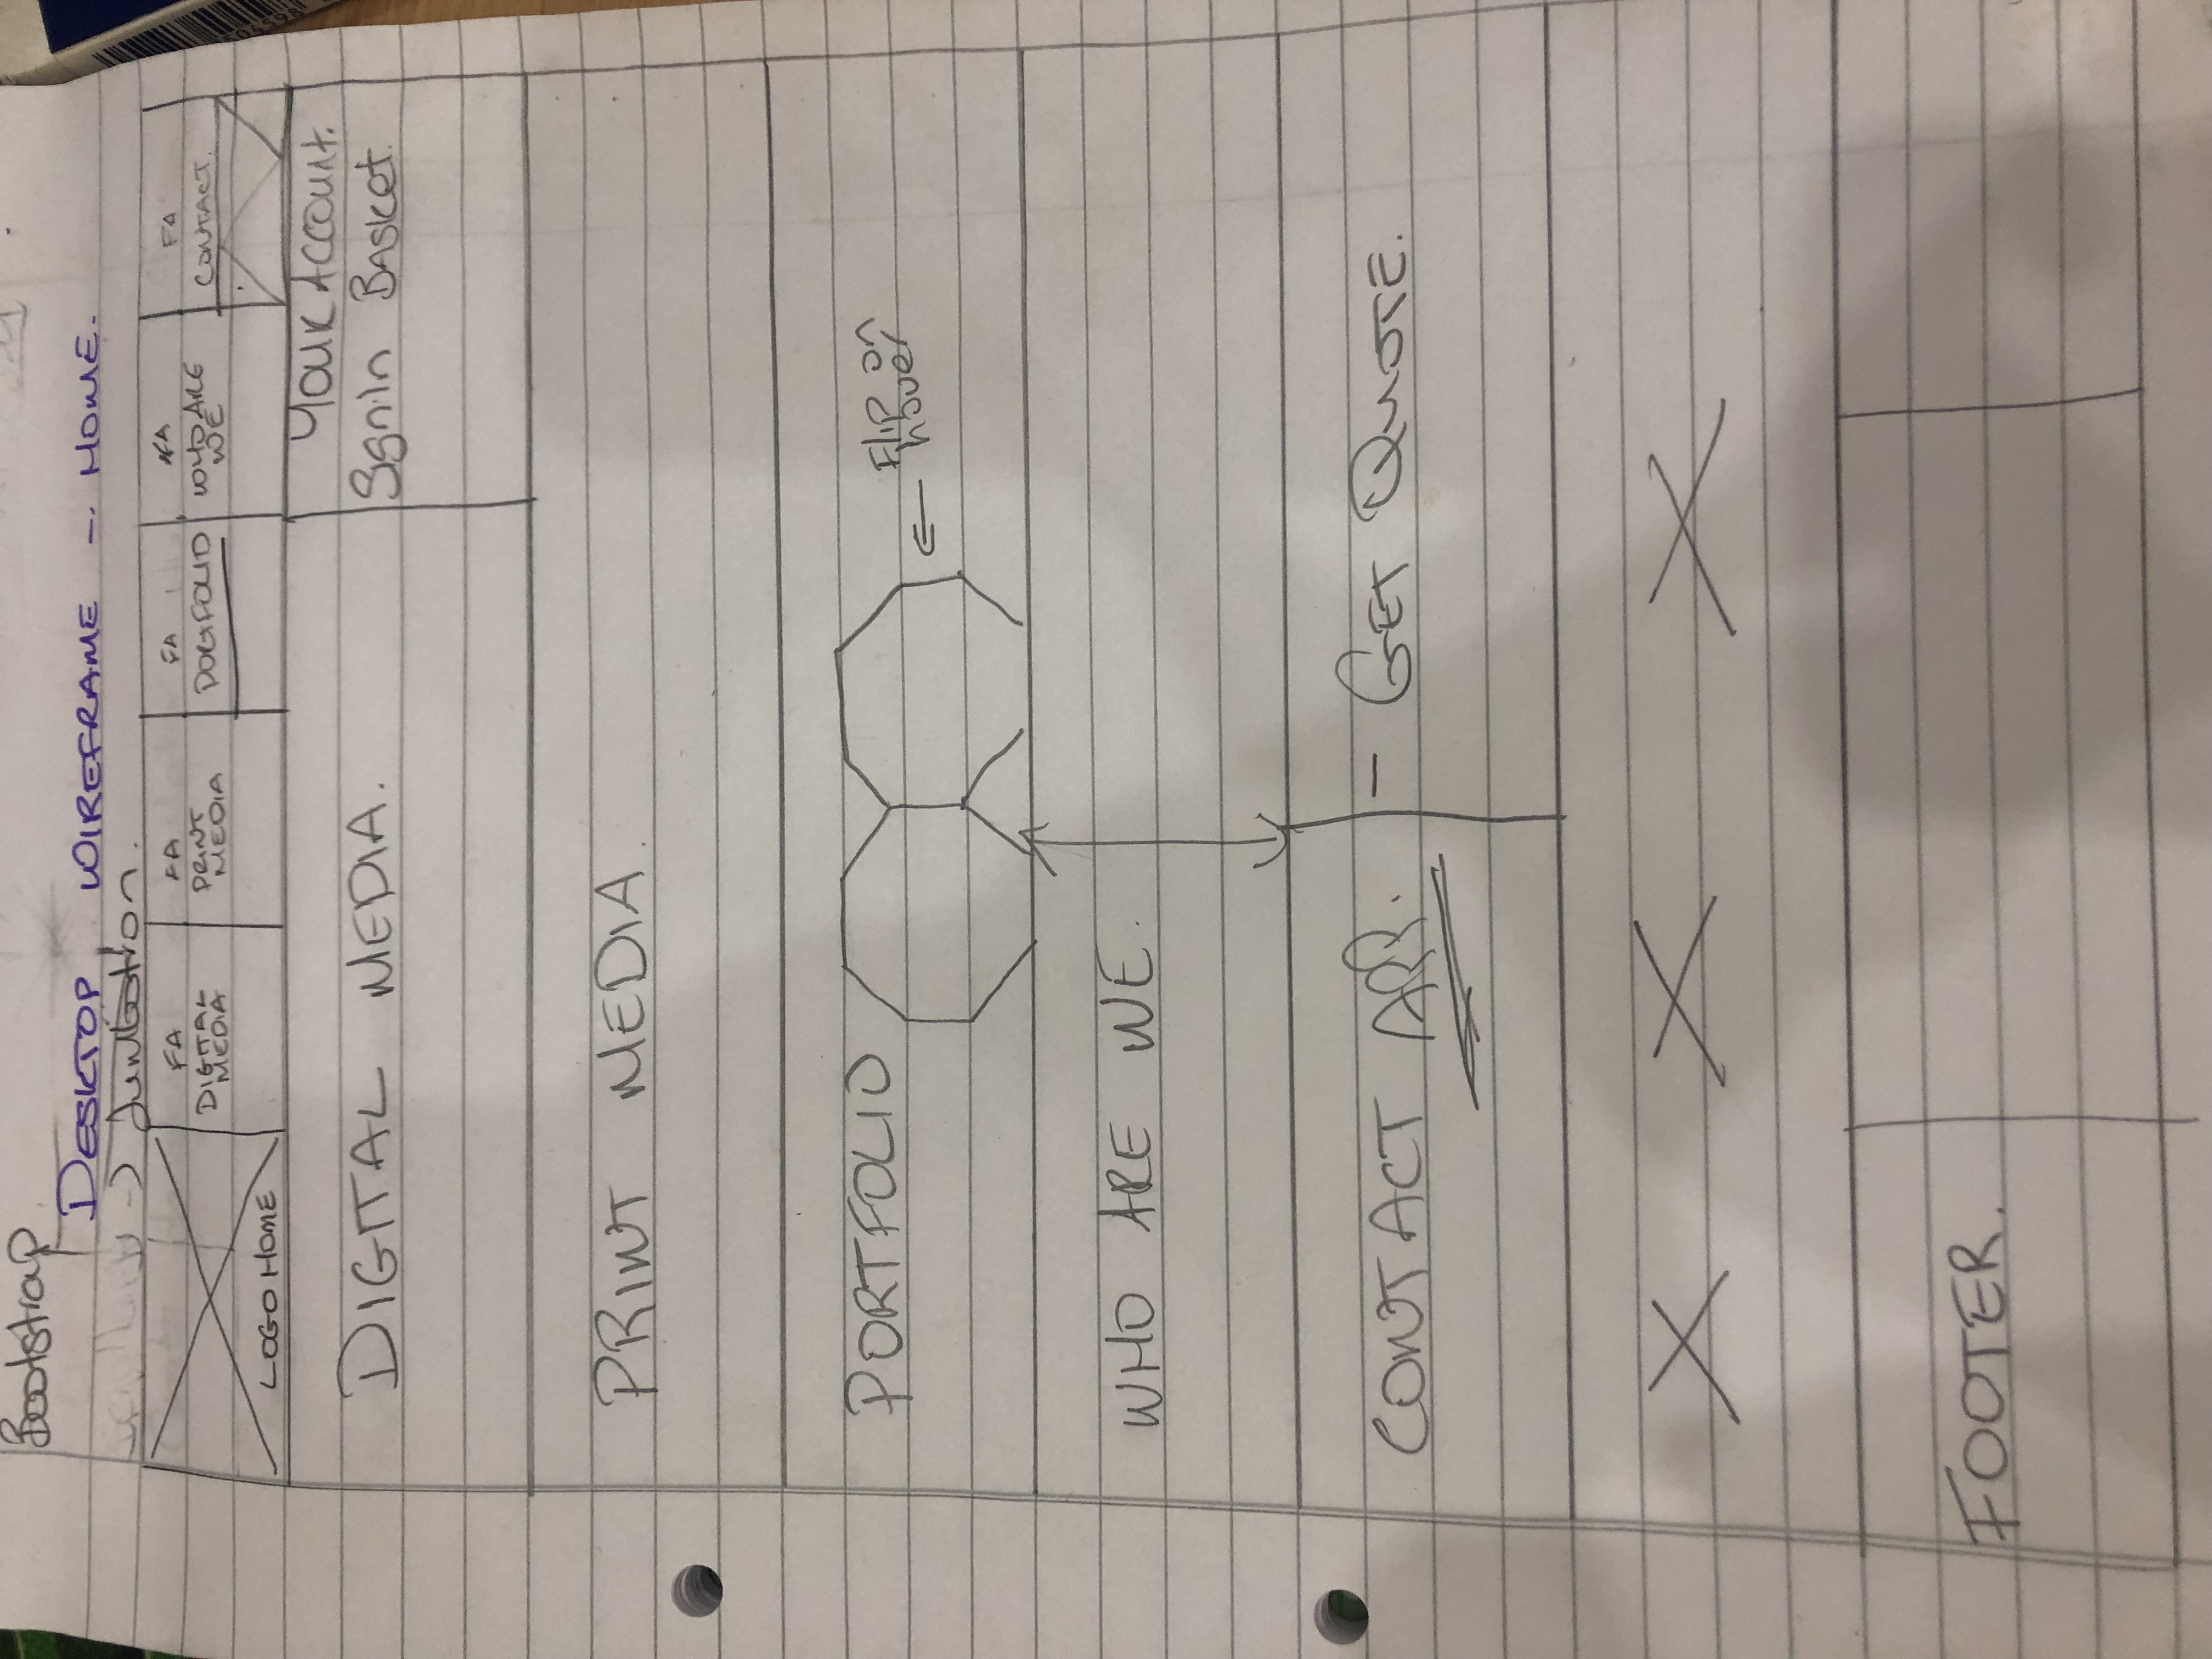 Bootstrap
DESKTOP WIREFRAME - HOME.
-> Jumbotron.
FA
DIGITAL
MEDIA
FA
PRINT
MEDIA
FA
PORTFOLIO
FA
WHO ARE
WE
FA
CONTACT.
LOGO HOME
YOUR ACCOUNT.
DIGITAL MEDIA.
SgnIn BASKet.
PRINT MEDIA.
PORTFOLIO
Flip on
hover
WHO ARE WE.
CONTACT APP. - GET QUOTE.
FOOTER.